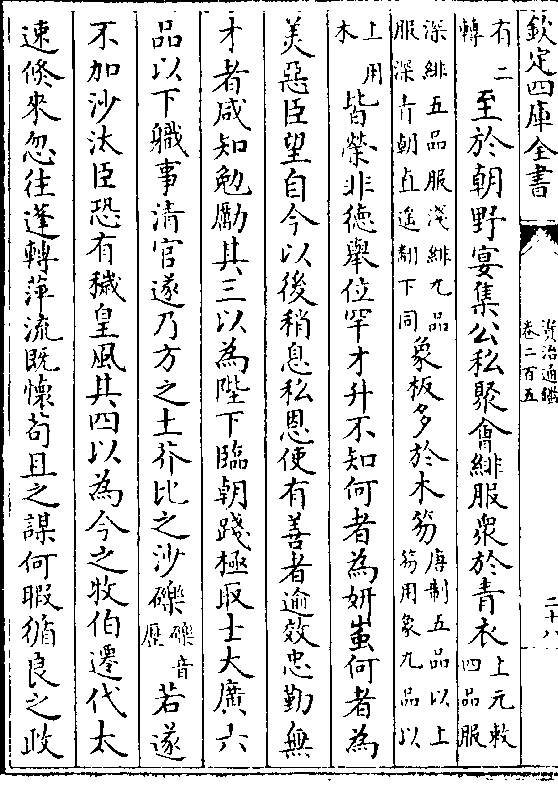 欽定四庫全書
資治通鑑
卷二百五
二十八
有二
轉
至於朝野宴集公私聚會緋服衆於青衣
上元敕
四品服
深緋五品服淺緋九品
服深青朝直遥翻下同
象板多於木笏
唐制五品以上
笏用象九品以
上用
木
皆榮非徳舉位罕才升不知何者為妍蚩何者為
美惡臣望自今以後稍息私恩使有善者逾效忠勤無
才者咸知勉勵其三以為陛下臨朝踐極取士大廣六
品以下軄事清官遂乃方之土芥比之沙礫
礫音
歴
若遂
不加沙汰臣恐有穢皇風其四以為今之牧伯遷代太
速倐來忽往蓬轉萍流既懷苟且之謀何暇循良之政